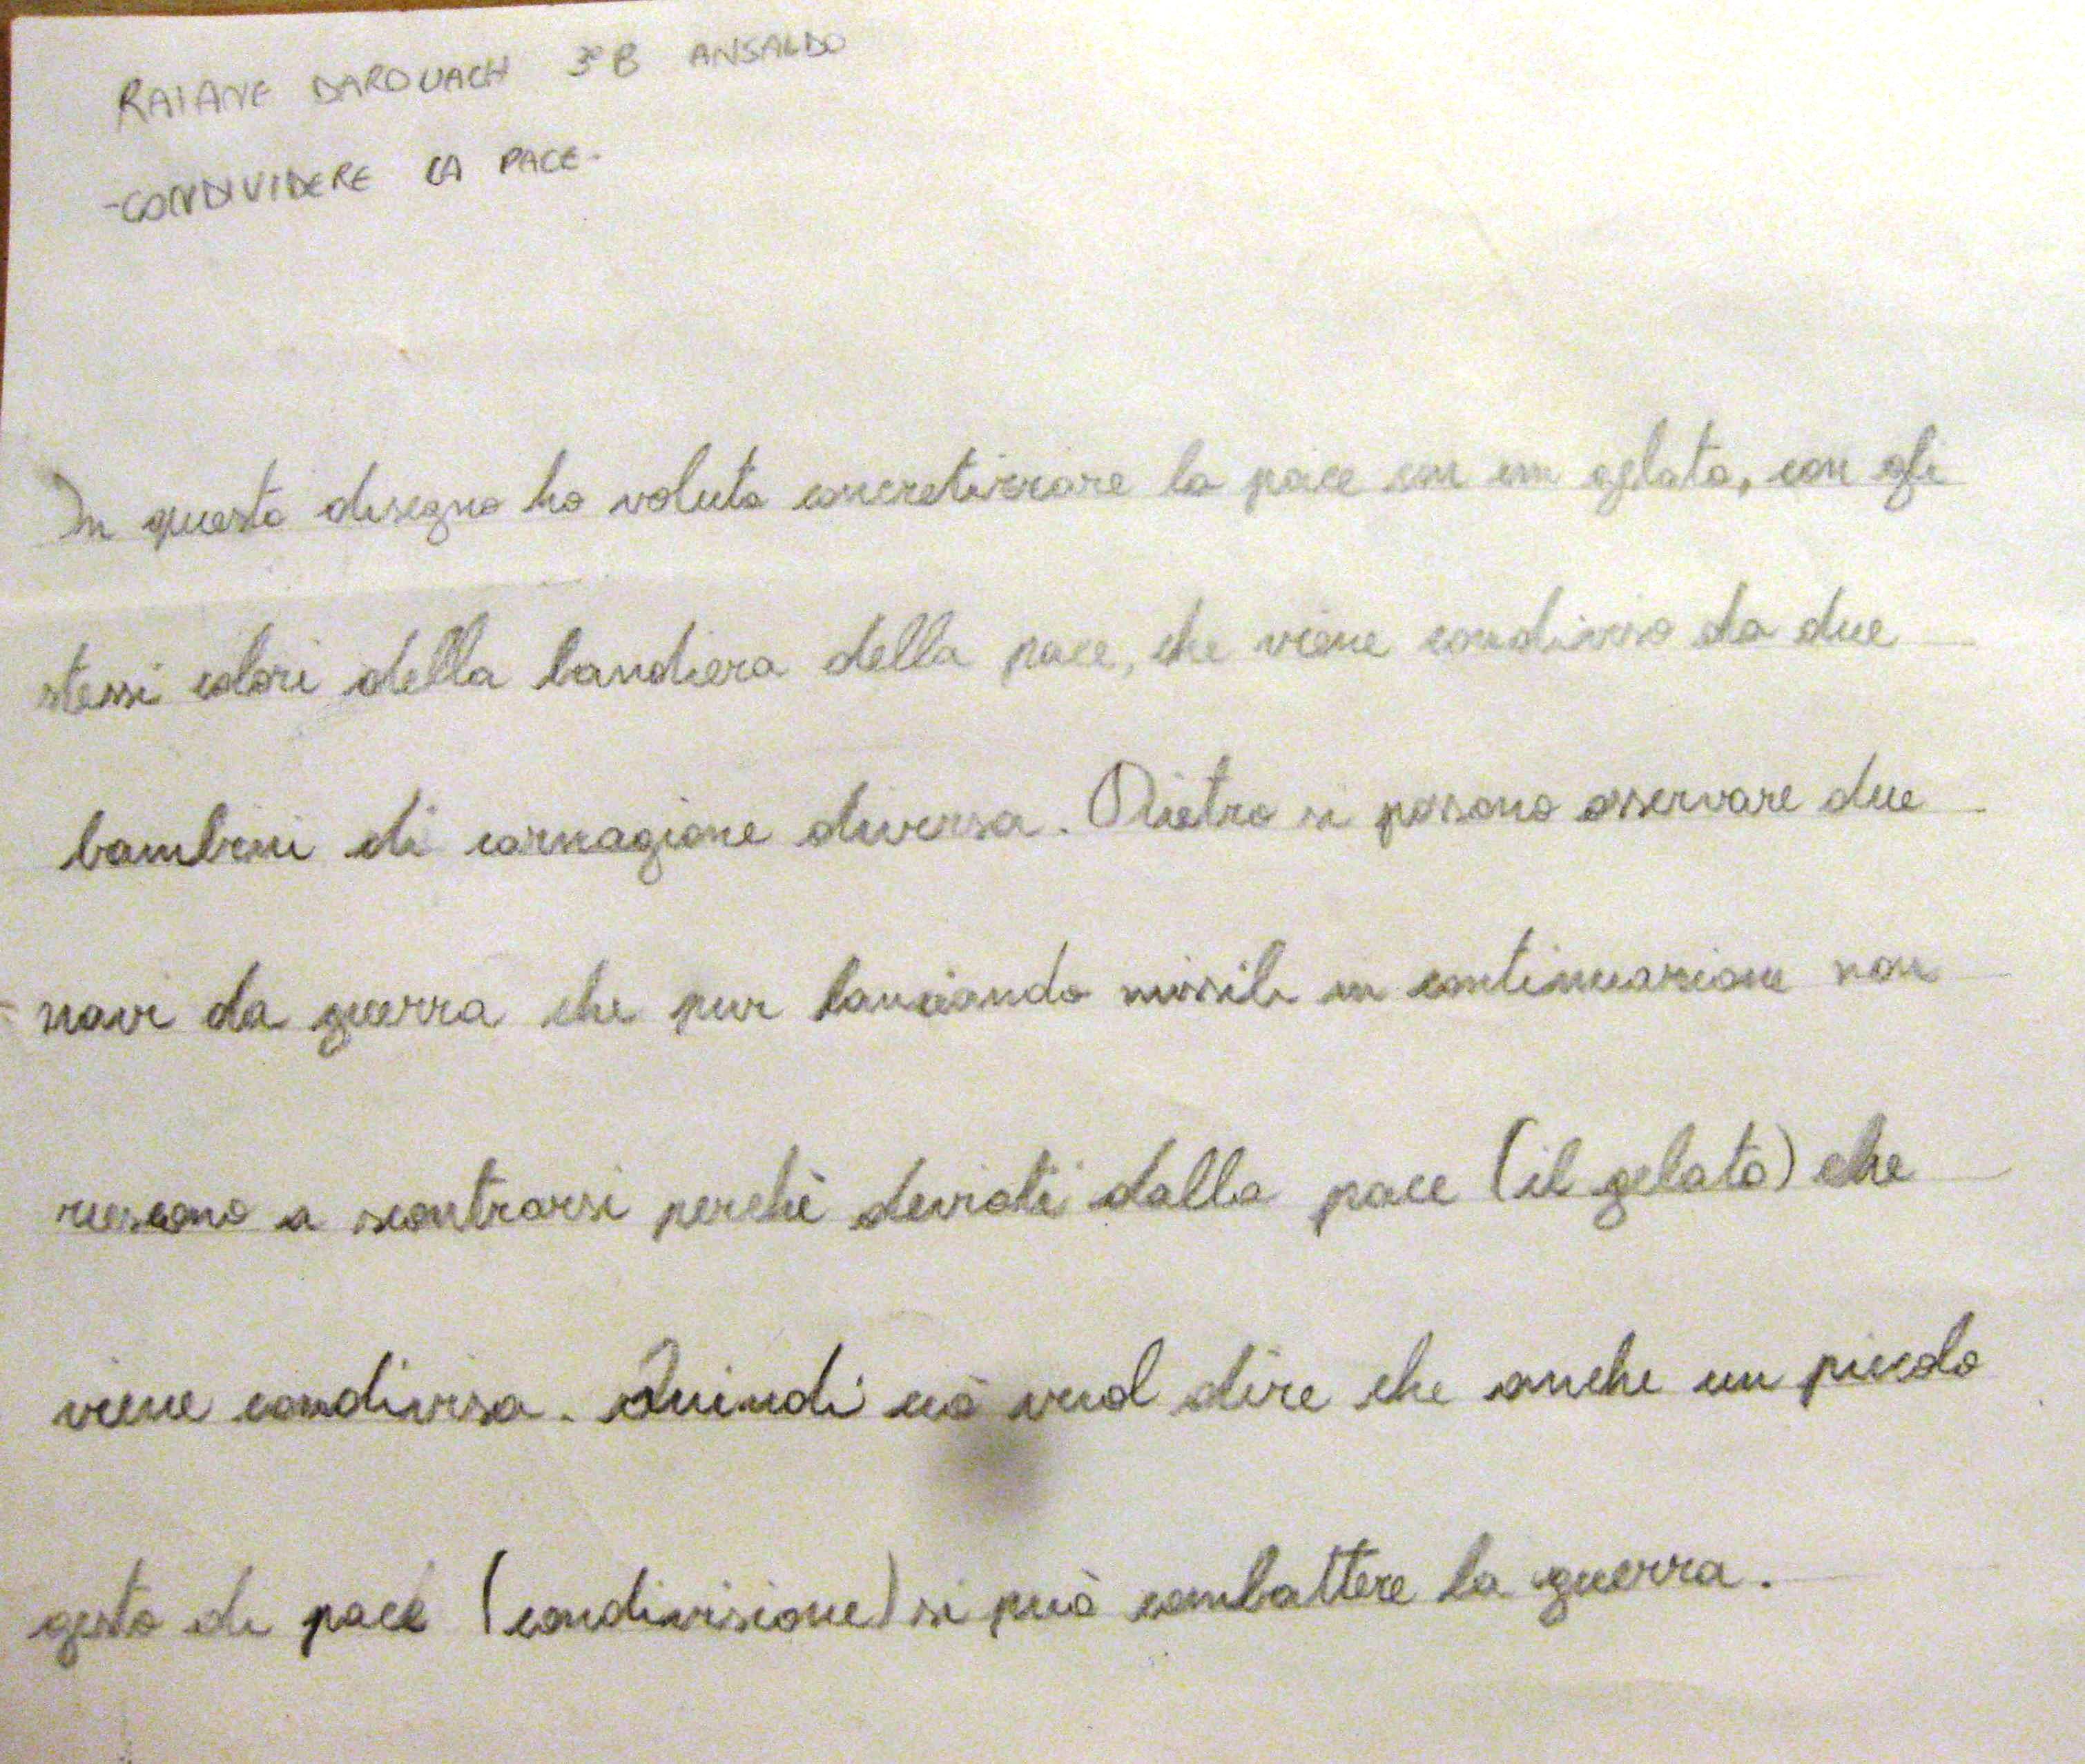 RAIANE DAROUACH 3°B ANSALDO
-CONDIVIDERE LA PACE-
In questo disegno ho voluto concretizzare la pace con un gelato, con gli
stessi colori della bandiera della pace, che viene condiviso da due
bambini di carnagione diversa. Dietro si possono osservare due
navi da guerra che pur lanciando missili in continuazione non
riescono a scontrarsi perchè deviati dalla pace (il gelato) che
viene condivisa. Quindi ciò vuol dire che anche un piccolo
gesto di pace (condivisione) si può combattere la guerra.